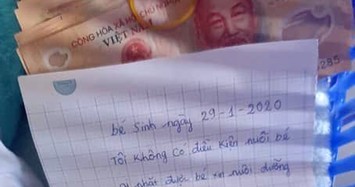 CỘNG HÒA XÃ HỘI CHỦ NGHĨA
VIỆT NAM
bé sinh ngày 29-1-2020
Tôi không có điều kiên nuôi bé
nhặt được bé xin nuôi dưỡng